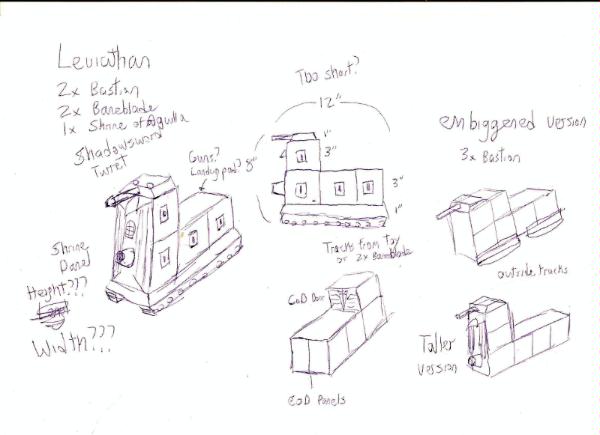 Leviathan
2x Bastion
2x Baneblade
1x Shrine of Aquilla
Shadowsword
Turret
Guns?
Landing pad?
Shrine
Panel
Height???
Width???
Too short?
12"
8"
1"
3"
3"
1"
Tracks from Toy
or 2x Baneblade
CoD Door
CoD Panels
embiggened version
3x Bastion
outside tracks
Taller
version